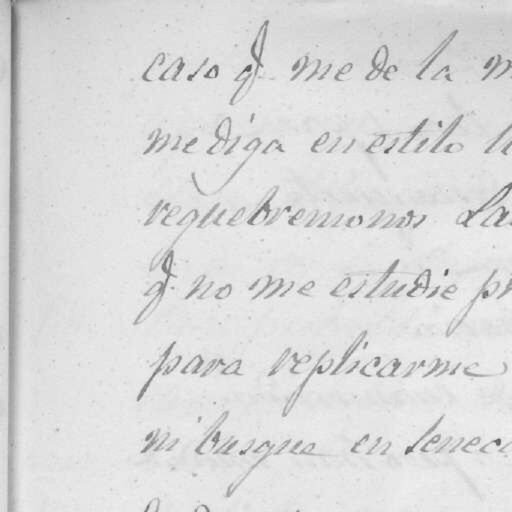 caso q me de la
me diga en estilo
requebremonos
q no me estudie
para replicarme
ni busque en Seneca